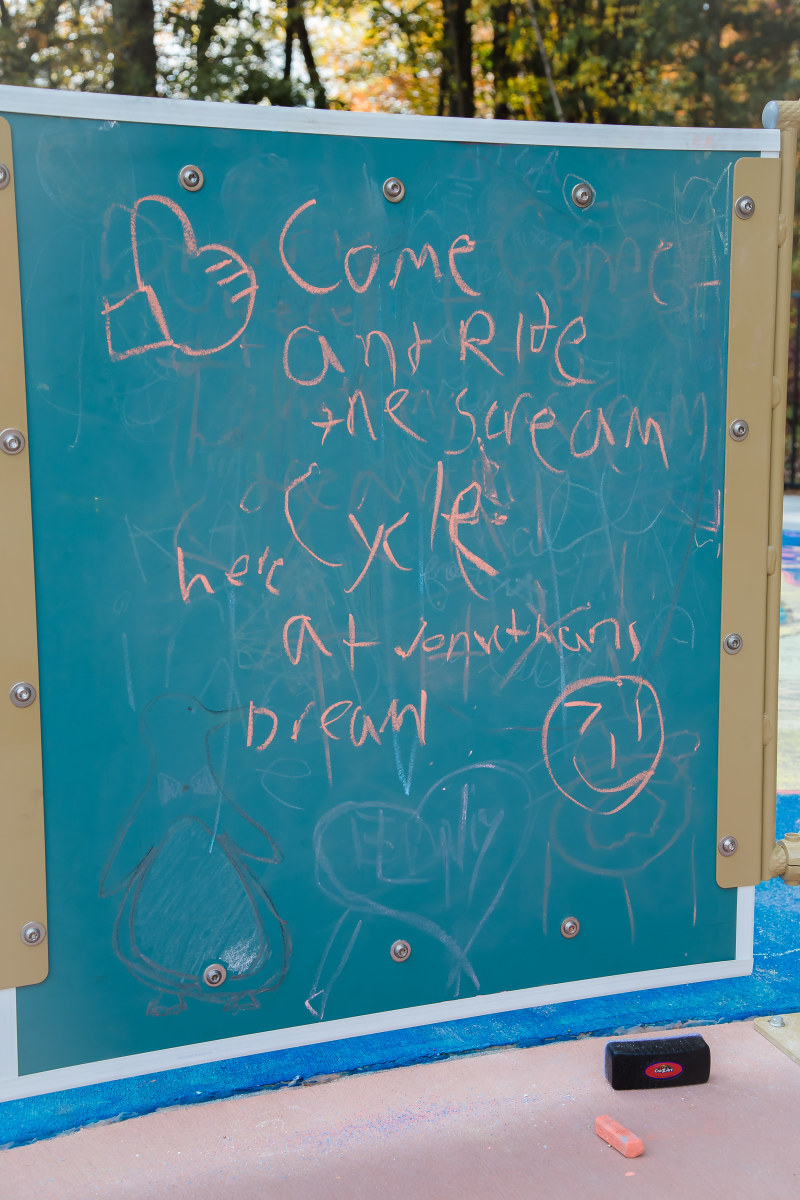 Come
ant Rite
the Scream
Cycle
here
at Jonathans
Dream
Cra-Z-Art